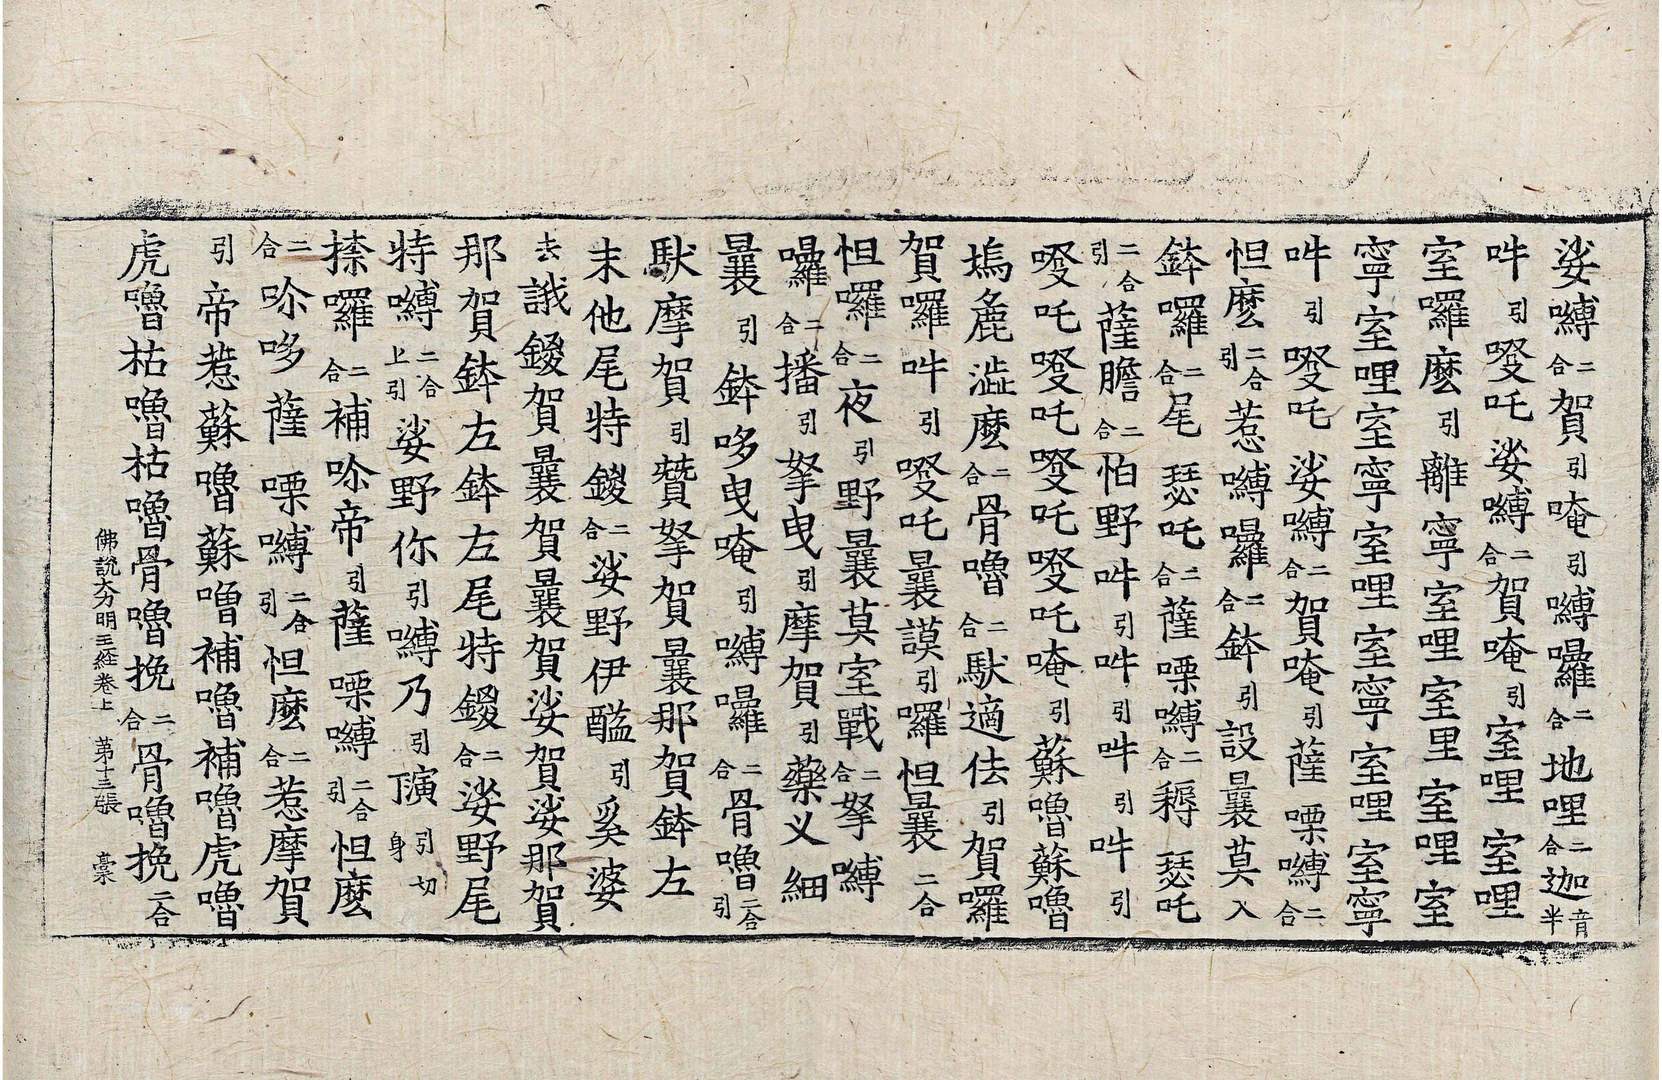 娑嚩二合賀引唵引嚩囉二合地哩二合迦半音
吽引㗣吒娑嚩二合賀唵引室哩室哩
室囉麼引離寧室哩室里室哩室
寧室哩室寧室哩室寧室哩室寧
吽引㗣吒娑嚩二合賀唵引薩㗚嚩二合
怛麼二合引惹嚩囉二合鉢引設曩莫入
鉢囉二合尾瑟吒二合薩㗚嚩二合耨瑟吒
二合引薩膽二合怕野吽引吽引吽引吽引
㗣吒㗣吒㗣吒㗣吒唵引蘇嚕蘇嚕
塢麁澁麼二合骨嚕二合馱適佉引賀囉
賀囉吽引㗣吒曩謨引囉怛曩二合
怛囉二合夜引野曩莫室戰二合拏嚩
囉二合播引拏曳引摩賀引藥义細
曩引鉢哆曳唵引嚩囉二合骨嚕二合引
馱摩賀引贊拏賀曩那賀鉢左
末他尾特鑁二合娑野伊醯引奚婆
去誐鑁賀曩賀曩賀娑賀娑那賀
那賀鉢左鉢左尾特鑁二合娑野尾
特嚩二合上引娑野你引嚩乃引隮引切身
捺囉二合補㖿帝引薩㗚嚩二合引怛麼
二合㖿哆薩㗚嚩二合引怛麼二合惹摩賀
引帝惹蘇嚕蘇嚕補嚕補嚕虎嚕
虎嚕枯嚕枯嚕骨嚕挽二合骨嚕挽二合
佛說大力明王經卷上 第十三張 稾